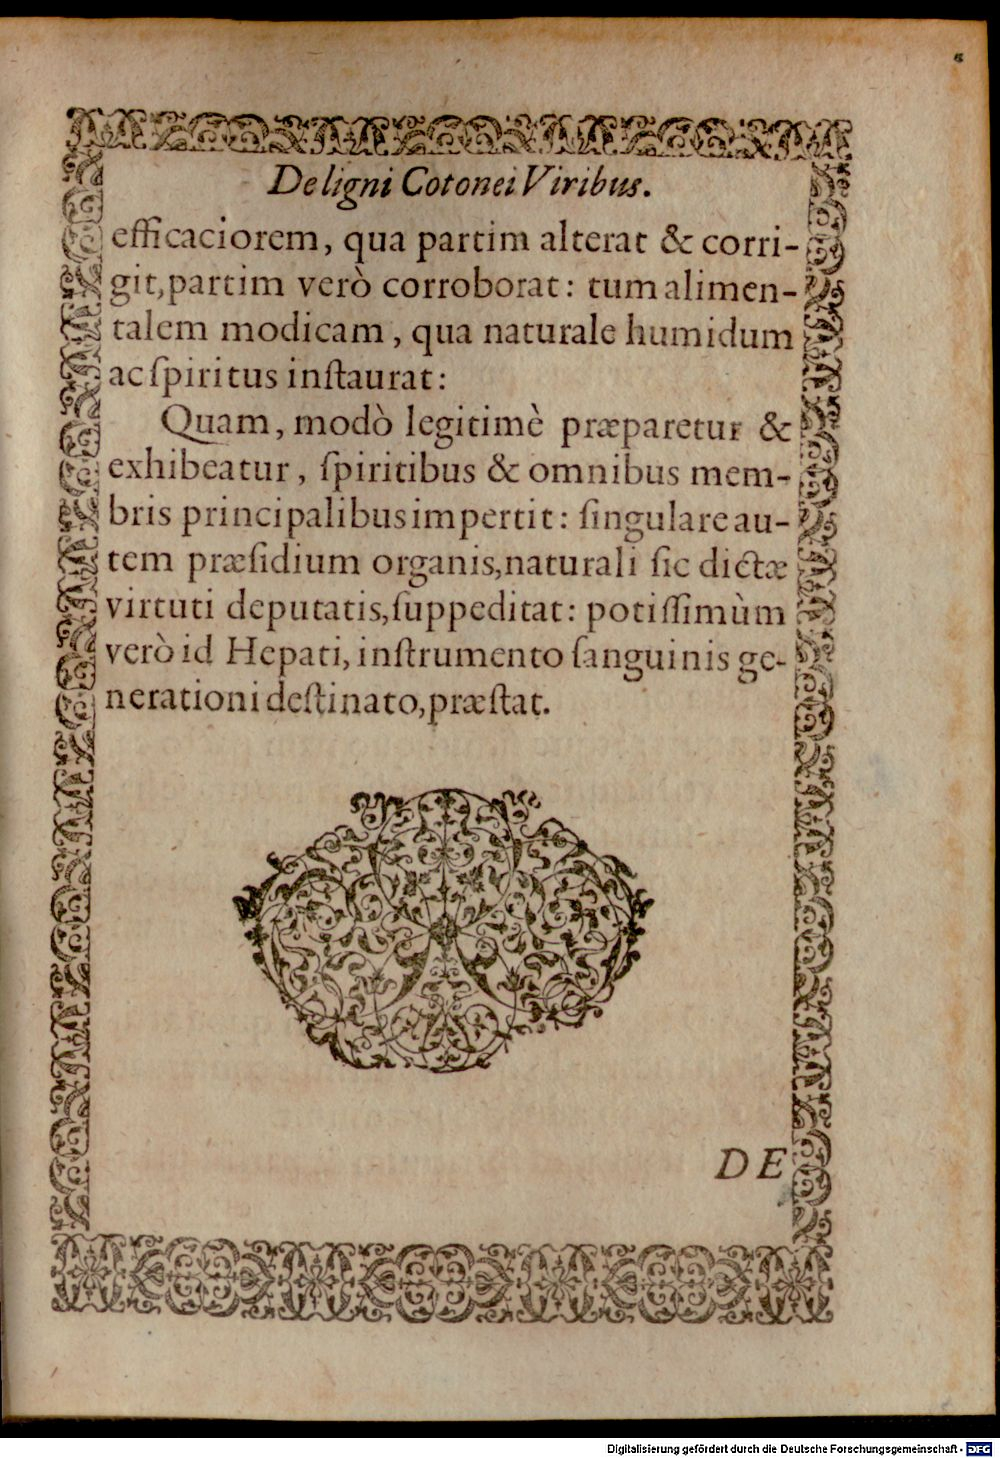 6
De ligni Cotonei Viribus.
efficaciorem, qua partim alterat & corri-
git, partim verò corroborat: tum alimen-
talem modicam, qua naturale humidum
ac ſpiritus inſtaurat:
Quam, modò legitimè præparetur &
exhibeatur, ſpiritibus & omnibus mem-
bris principalibus impertit: ſingulare au-
tem præſidium organis, naturali ſic dictæ
virtuti deputatis, ſuppeditat: potiſſimùm
verò id Hepati, inſtrumento ſanguinis ge-
nerationi deſtinato, præſtat.
DE
Digitalisierung gefördert durch die Deutsche Forschungsgemeinschaft - DFG